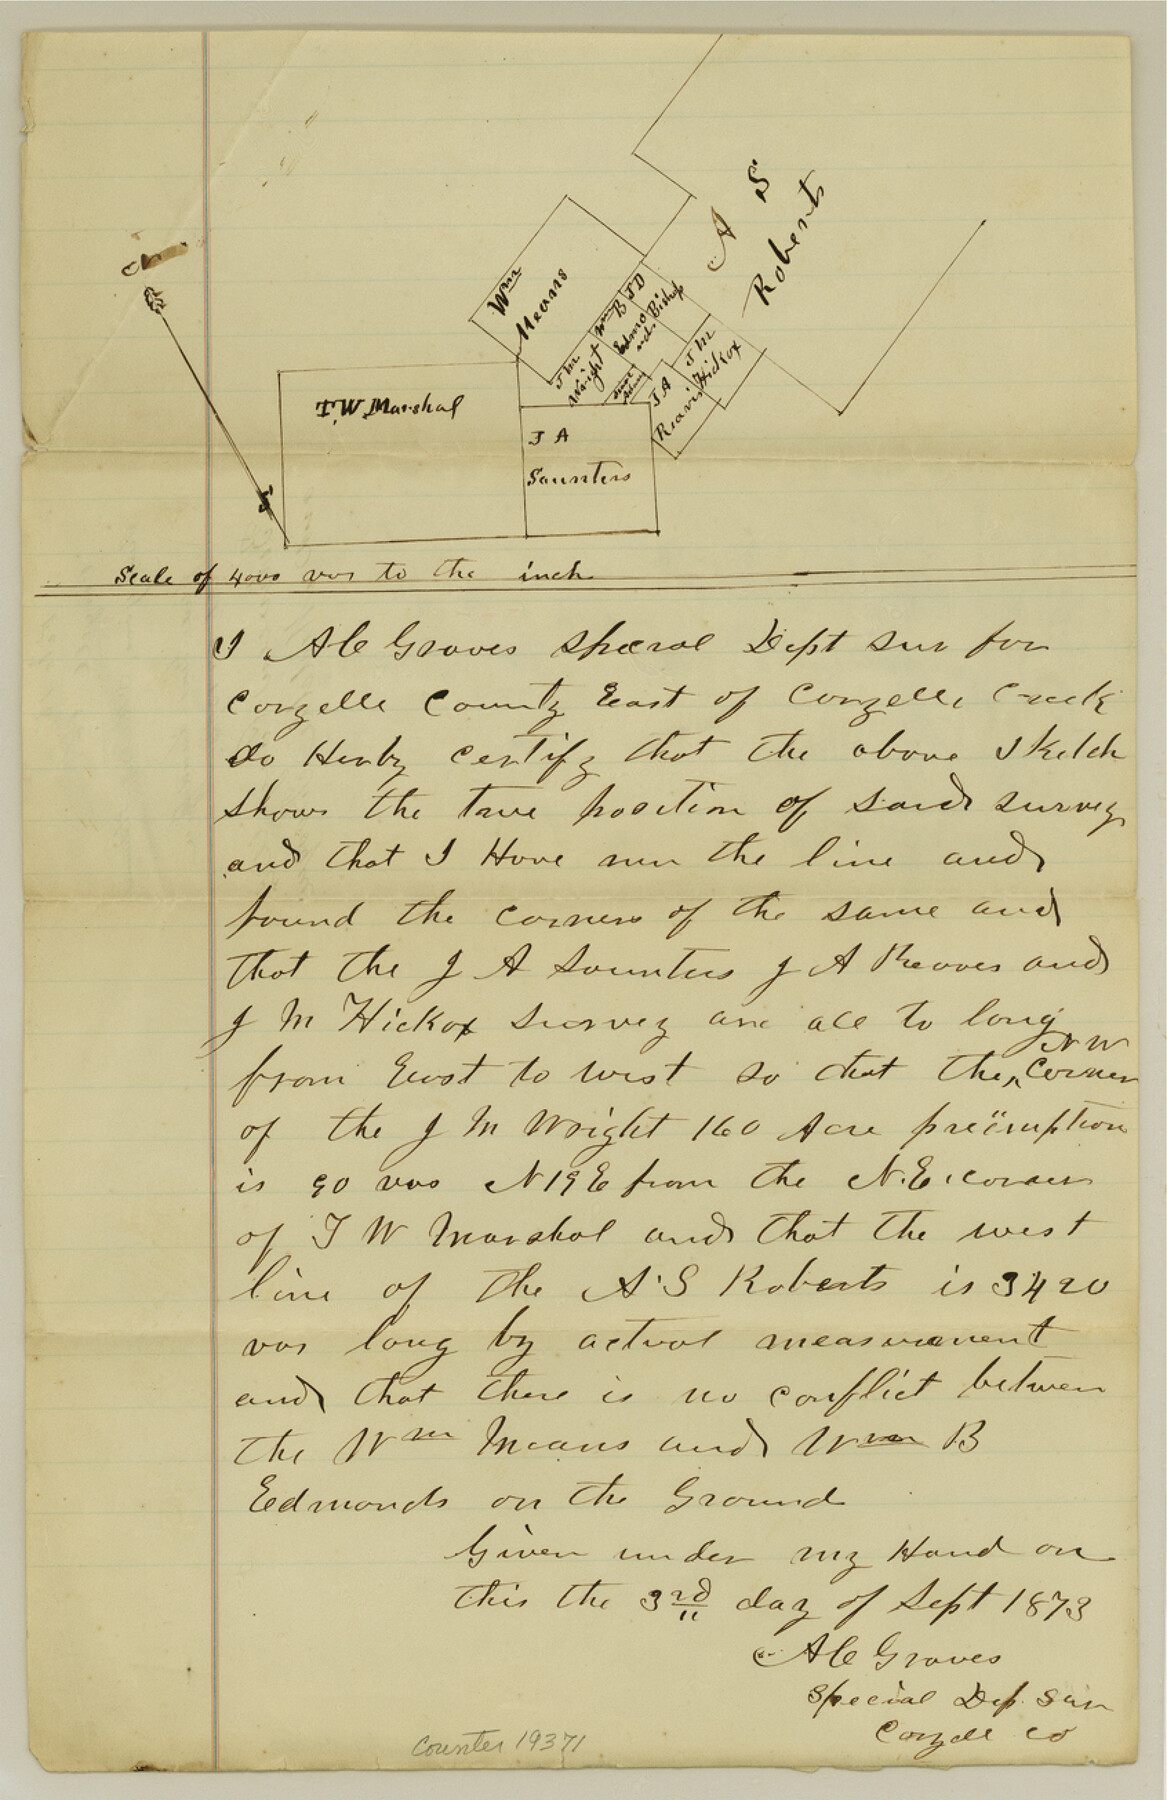 A S
Roberts
Wm
Means
J D
Bishop
Wm B
Edmo
nds
J M
Wright
J M
Hickox
J A
Reavis
T. W. Marshal
J A
Saunters
S
Scale of 4000 vrs to the inch
I A C Groves special Dept sur for
Coryelle County East of Coryelle Creek
do Herby certify that the above sketch
shows the true position of said survey
and that I Have run the line and
found the corners of the same and
that the J A Saunters J A Reaves and
J M Hickox survey are all to long
from East to west so that the N W Corner
of the J M Wright 160 Acre preëmption
is 90 vrs N 19 E from the N. E. corner
of T W Marshal and that the west
line of the A. S Roberts is 3420
vrs long by actual measurement
and that there is no conflict between
the Wm Means and Wm B
Edmonds on the Ground
Given under my Hand on
this the 3rd day of Sept 1873
A C Groves
Special Dep. Sur
Coryell Co
Counter 19371